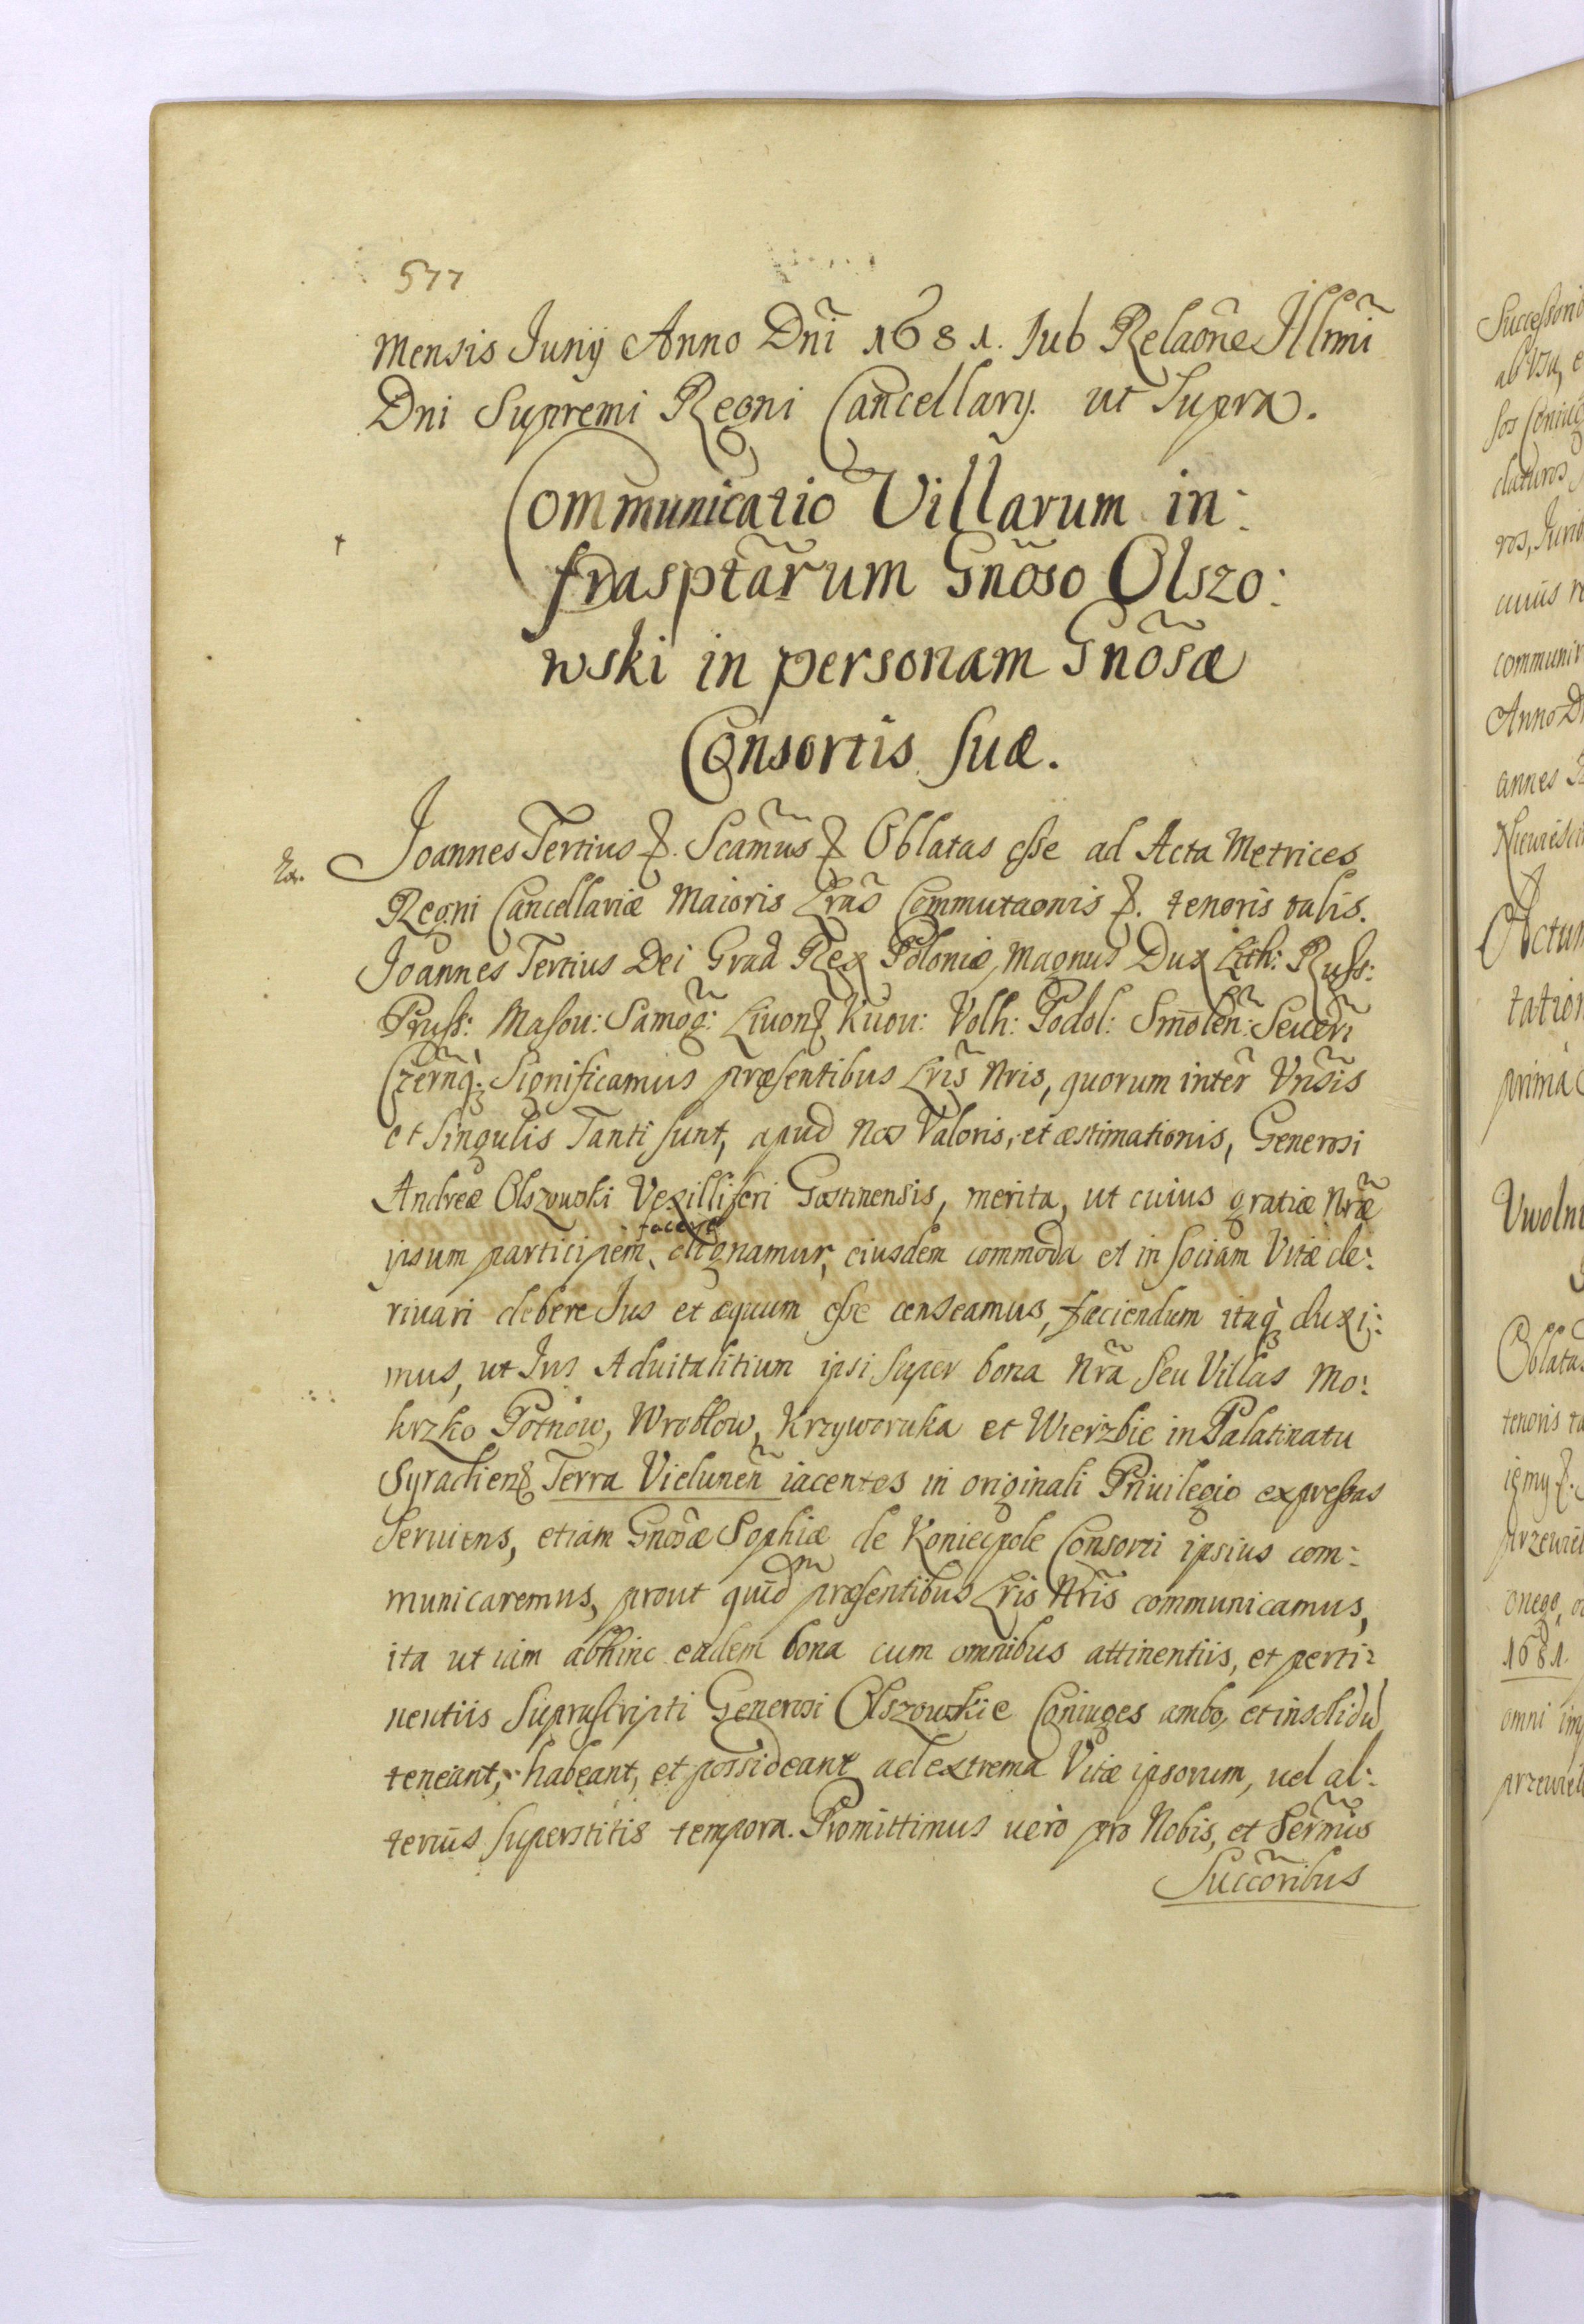 577
Mensis Junÿ Anno Dnĩ 1681. Sub Relaõne Jllmĩ
Dni Supremi Regni Cancellarÿ. ut Supra.
Communicatio Villarum in:
fraspt̃ar̃um Gnõso Olszo:
wski in personam Gnõsæ
Consortis suæ.
Joannes Tertius &. Scãmus & Oblatas esse ad Acta Metrices
Regni Cancellariæ Maioris Lrãs Commutaonis &. tenoris talis.
Joannes Tertius Dei Gra͂ Rex Poloniæ, Magnus Dux Lith: Russ:
Pruss: Masou: Samog̃: Liuon& Kuou: Volh: Podol: Smolen̄: Seuerĩ
Czern̄q;. Significamus præsentibus Lrĩs Nris, quorum inter̃ Vñsis
et singulis Tanti sunt, apud Nos Valoris, et æstimationis, Generosi
Andreæ Olszowski Vexilliferi Gostinensis, merita, ut cuius gratiæ Nræ̃
facere
ipsum participem, dignamur, eiusdem commoda et in sociam Vitæ de:
riuari debere Jus et æquum esse censeamus, faciendum itaq; duxi:
mus, ut Jus Aduitalitium ipsi super bona Nrã seu Villas Mo:
krzko Potnow, Wroblow, Krzyworuka et Wierzbie in Palatinatu
Syradien& Terra Vielunen̄ iacentes in originali Priuilegio expressas
seruiens, etiam Gnosæ Sophiæ de Koniecpole Consorti ipsius com:
municaremus, prout quid̃m præsentibus Lris Nrĩs communicamus,
ita ut iam abhinc eadem bona cum omnibus attinentiis, et perti:
nentiis suprascripti Generosi Olszowskie Coniuges ambo, et insolidũ
teneant, habeant, et possideant ad extrema Vitæ ipsorum, uel al:
terius superstitis tempora. Promittimus uerò pro Nobis, et Sermĩs
Succõribus